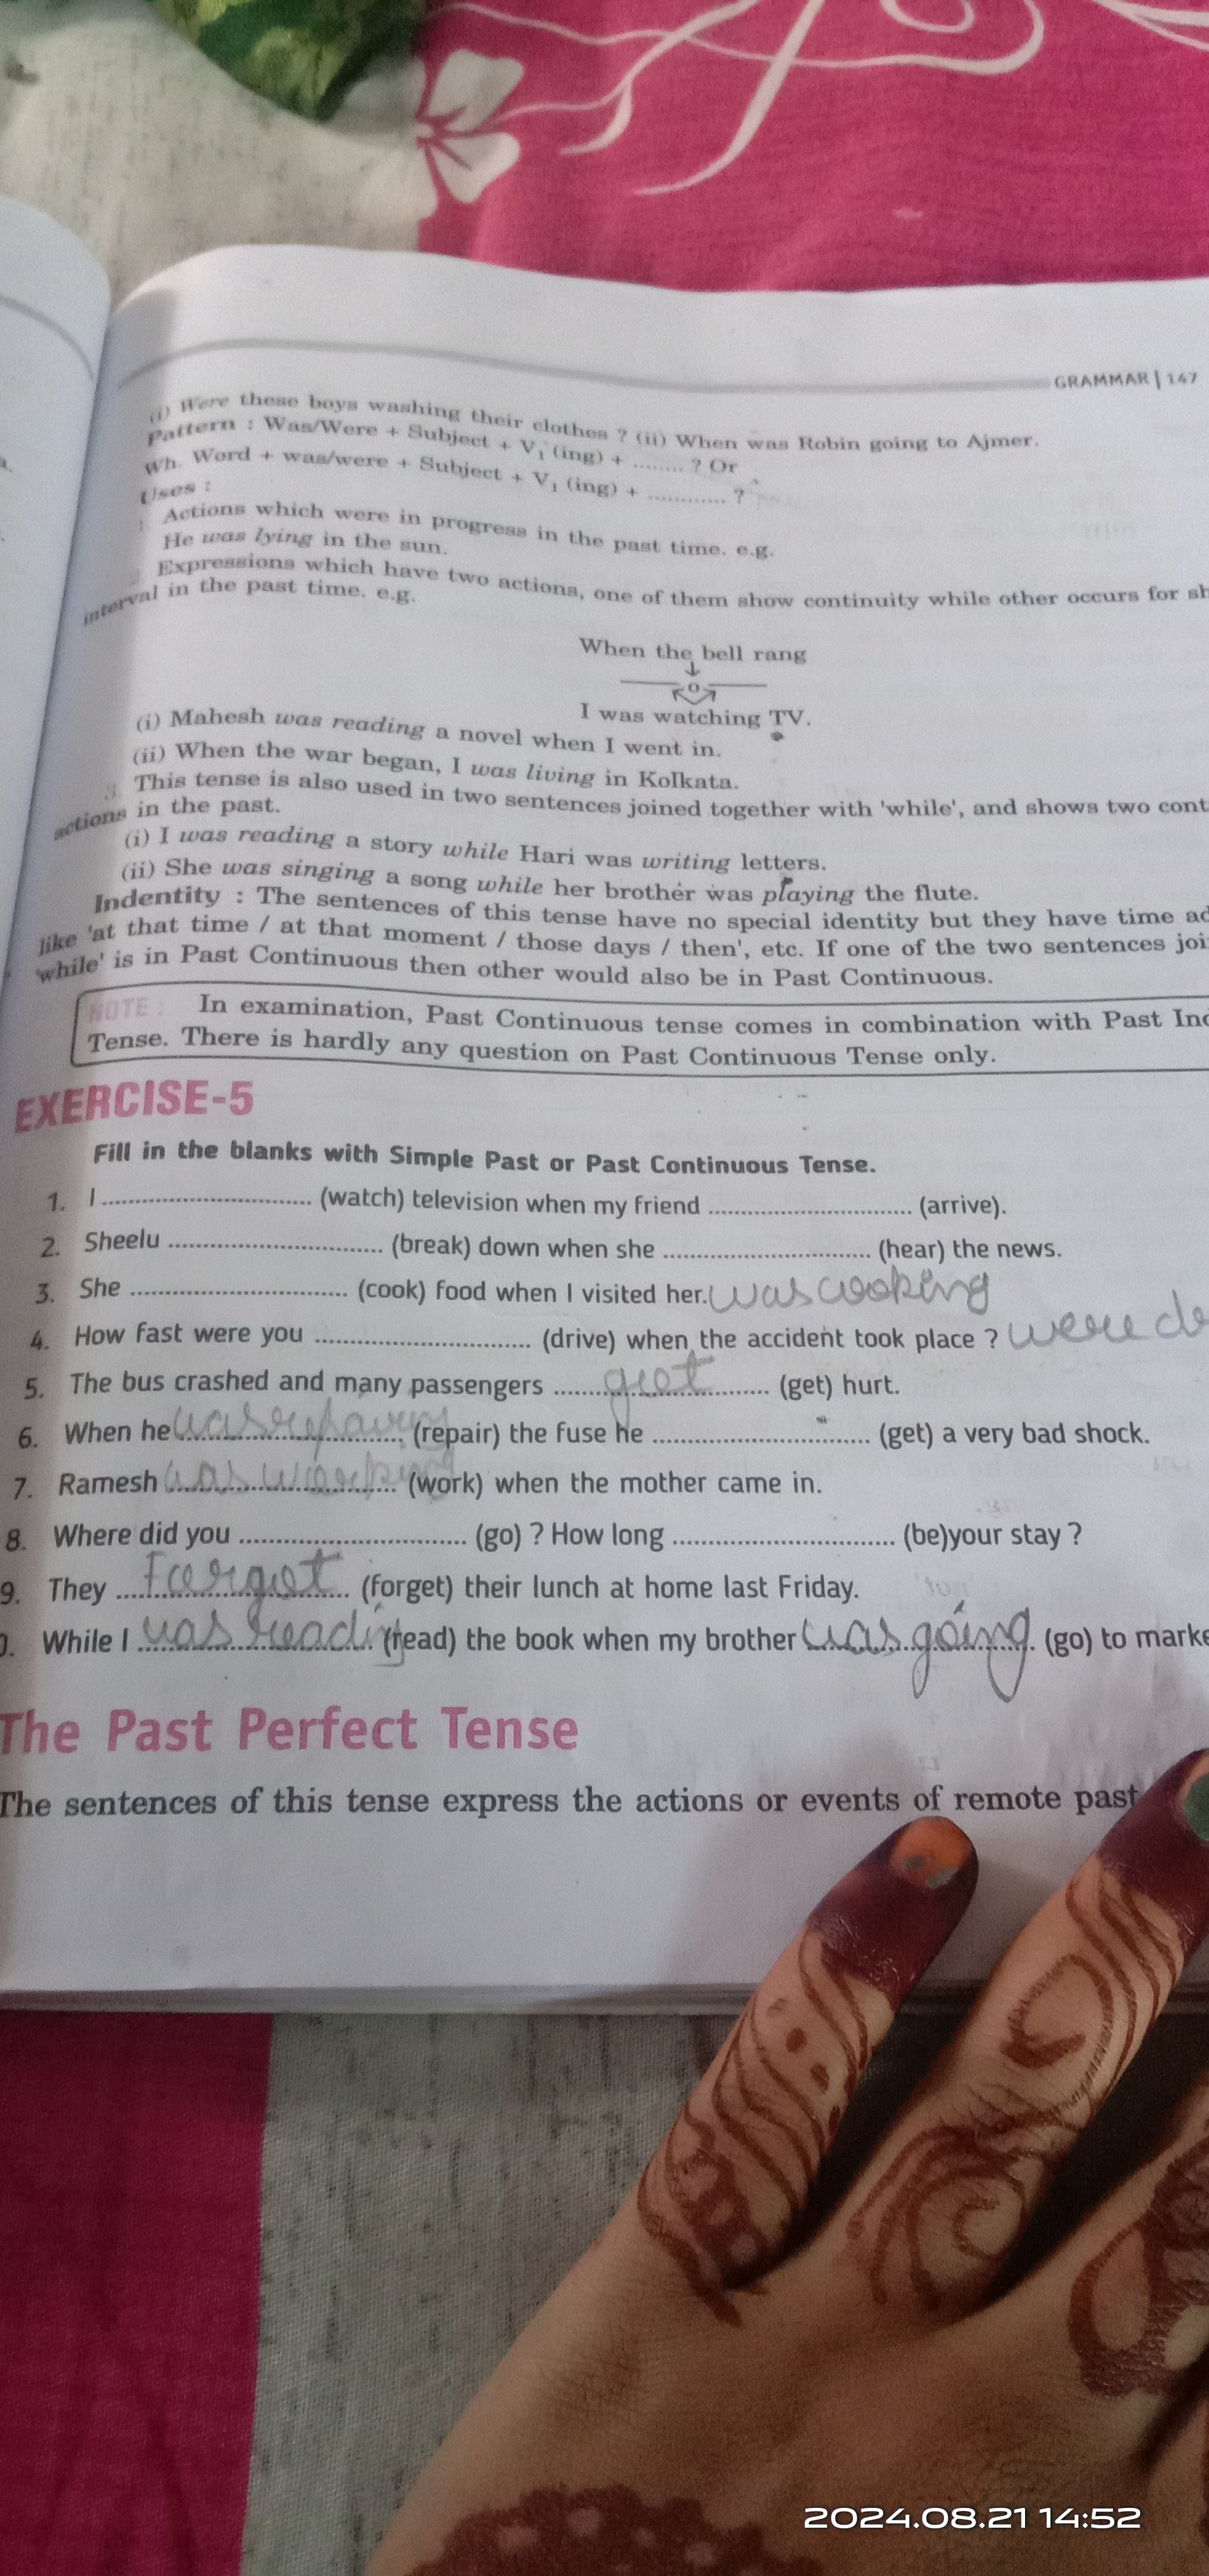 GRAMMAR | 147
(i) Were these boys washing their clothes ? (ii) When was Robin going to Ajmer.
Pattern : Was/Were + Subject + V₁ (ing) + ........ ? Or
Wh. Word + was/were + Subject + V₁ (ing) + ............ ?
Uses :
Actions which were in progress in the past time. e.g.
He was lying in the sun.
Expressions which have two actions, one of them show continuity while other occurs for
interval in the past time. e.g.
When the bell rang
I was watching TV.
(i) Mahesh was reading a novel when I went in.
(ii) When the war began, I was living in Kolkata.
3. This tense is also used in two sentences joined together with 'while', and shows two cont
actions in the past.
(i) I was reading a story while Hari was writing letters.
(ii) She was singing a song while her brother was playing the flute.
Indentity : The sentences of this tense have no special identity but they have time ad
like 'at that time / at that moment / those days / then', etc. If one of the two sentences joi
'while' is in Past Continuous then other would also be in Past Continuous.
NOTE : In examination, Past Continuous tense comes in combination with Past Ind
Tense. There is hardly any question on Past Continuous Tense only.
EXERCISE-5
Fill in the blanks with Simple Past or Past Continuous Tense.
1. I .............................. (watch) television when my friend .............................. (arrive).
2. Sheelu .............................. (break) down when she .............................. (hear) the news.
3. She .............................. (cook) food when I visited her. was cooking
4. How fast were you .............................. (drive) when the accident took place ? were
5. The bus crashed and many passengers .............................. (get) hurt.
6. When he .............................. (repair) the fuse he .............................. (get) a very bad shock.
7. Ramesh was working (work) when the mother came in.
8. Where did you .............................. (go) ? How long .............................. (be)your stay ?
9. They forgot (forget) their lunch at home last Friday.
While I was reading (read) the book when my brother was going (go) to marke
The Past Perfect Tense
The sentences of this tense express the actions or events of remote past
2024.08.21 14:52